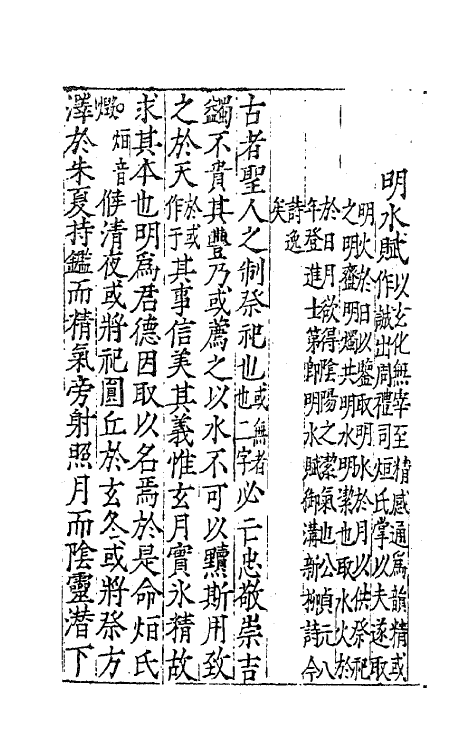 明水賦以玄化無宰至精感通爲韻精或
作誠出周禮司烜氏掌以夫遂取
明火於日以鑒取明水於月以供祭祀
之明齍明燭共明水明潔也取水火於
於日月欲得陰陽之潔氣也公貞元八
年登進士第即明水賦御溝新栁詩今
詩逸
矣
古者聖人之制祭祀也或無者也二字必忠敬崇吉
蠲不貴其豐乃或薦之以水不可以黷斯用致
之於天於或作于其事信美其義惟玄月實水精故
求其本也明爲君德因取以名焉於是命烜氏
烜音燬俾清夜或將祀圓丘於玄冬或將祭方
澤於朱夏持鑑而精氣旁射照月而陰靈潛下